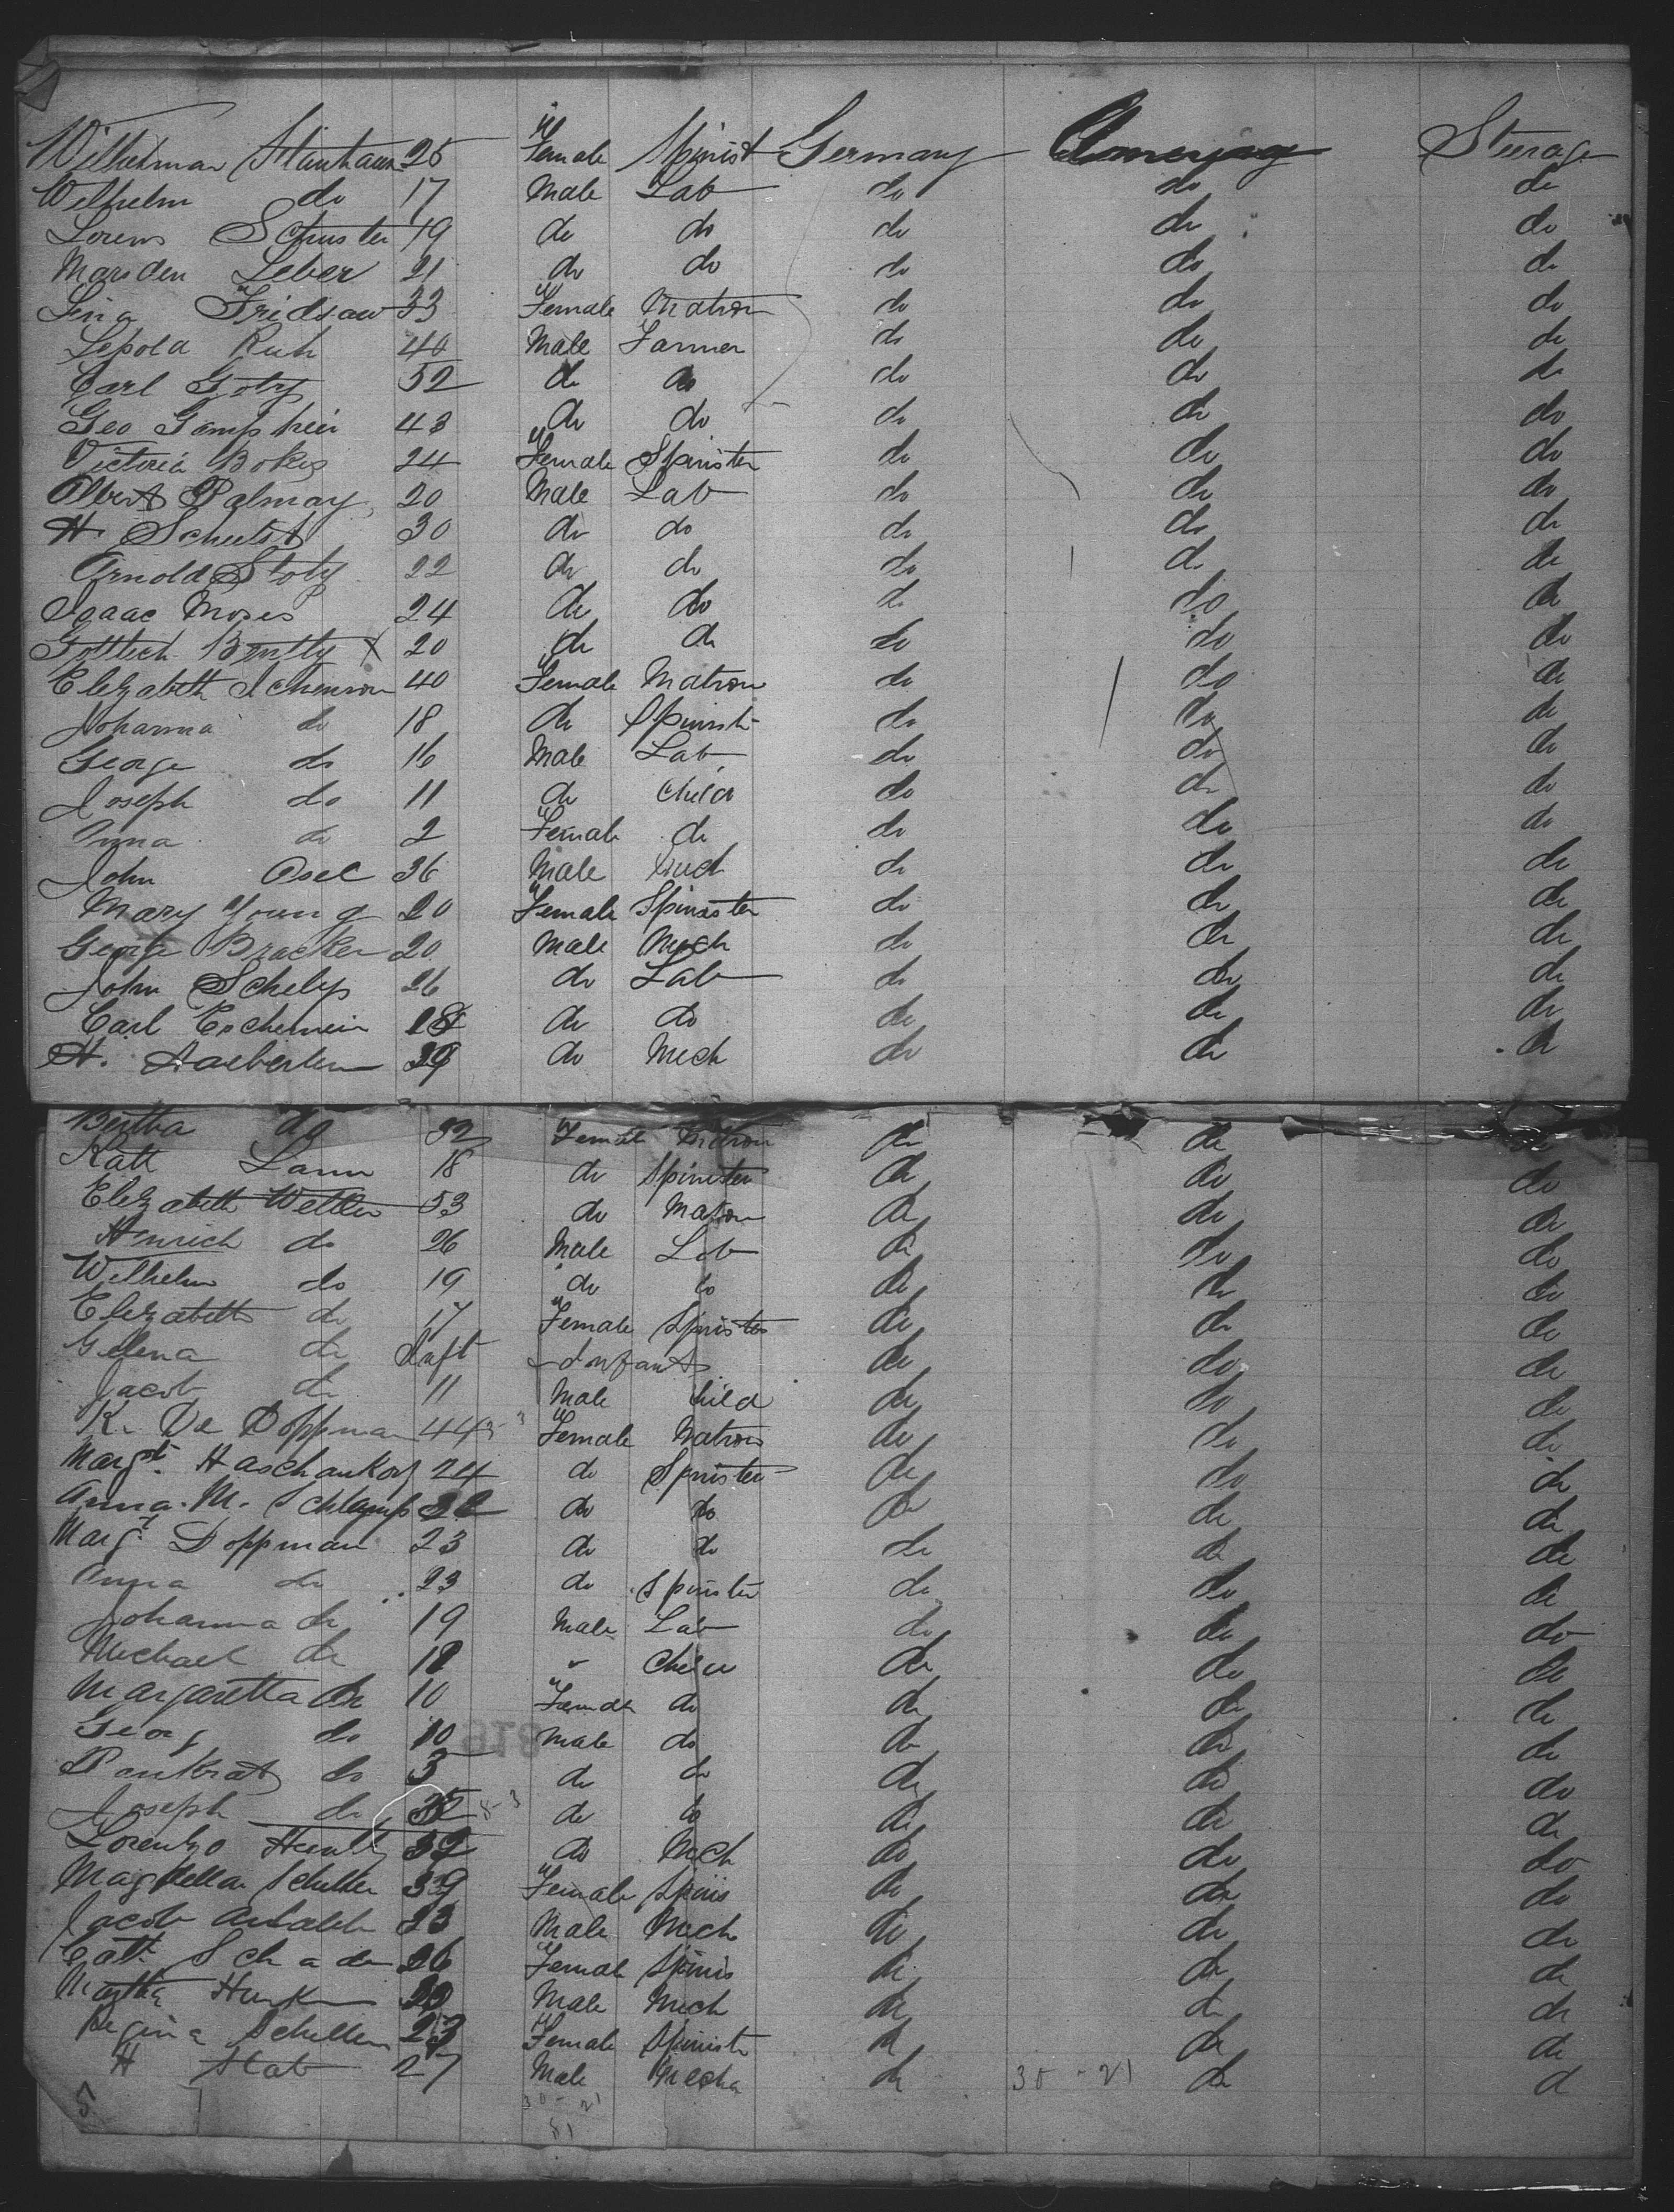 Wilhelmina Steinhauer 25 Female Spinist Germany America Steerage
Wilhelm do 17 Male Lab do do do
Lorens Schuster 19 do do do do do
Marsden Leber 21 do do do do do
Lina Fridsaw 33 Female Matron do do do
Lepold Ruh 40 Male Farmer do do do
Carl Gotz 52 do do do do do
Geo 43 do do do do do
Victoria Bokes 24 Female Spinster do do do
Albert Palmay 20 Male Lab do do do
H. Schulst 30 do do do do do
Arnold Stotz 22 do do do do do
Isaac Moses 24 do do do do do
Gottlieb X 20 do do do do do
Elizabeth 40 Female Matron do do do
Johanna do 18 do Spinst do do do
George do 16 Male Lab do do do
Joseph do 11 do Child do do do
Anna do 2 Female do do do do
John Osel 36 Male Mech do do do
Mary Young 20 Female Spinster do do do
George Bracker 20 Male Mech do do do
John Schelys 26 do Lab do do do
Carl Eschenein do do do do do
H. Haeberlen 39 do Mech do do do
Bertha do 32 Female Matron do do do
Katt Lann 18 do Spinster do do do
Elizabeth Weller 53 do Matron do do do
Henrich do 26 Male Lab do do do
Wilhelm do 19 do do do do do
Elizabeth do 17 Female Spinster do do do
Gelena do Infant do do do
Jacob do 11 Male Child do do do
K. De Doppman 44 Female Matron do do do
Margt. Haschankoy 24 do Spinster do do do
Anna. M. Schlamp do do do do do
Margt Doppman 23 do do do do do
Anna do 23 do Spinster do do do
Johanna do 19 Male Lab do do do
Michael do Child do do do
Margaretta do 10 Female do do do do
Georg do 10 Male do do do do
Pankratz do 3 do do do do do
Joseph do do do do do do
Lorenzo 32 do Mech do do do
Magdella Schuller 39 Female Spins do do do
Jacob 23 Male Mech do do do
Cath. Schader 26 Female Spinis do do do
Martha Hunk Male Mech do do do
Regina Schellen 23 Female Spinist do do do
H Stab 27 Male Mecha do 30-21 do do
30-21
81